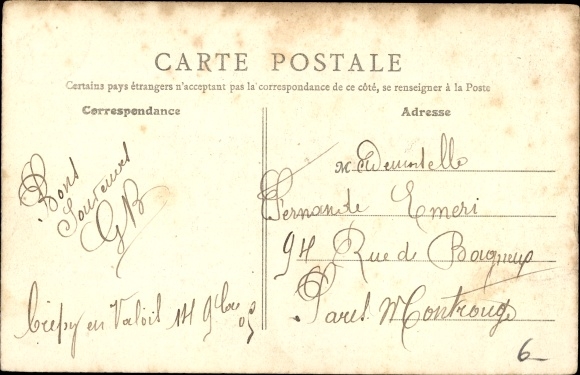 CARTE POSTALE
Certains pays étrangers n'acceptant pas la correspondance de ce côté, se renseigner à la Poste
Correspondance
Adresse
Bons
Souvenirs
GB
Crépy en Valois 14 9bre 05
Mademoiselle
Fernande Emeri
94 Rue de Bagneux
Paris Montrouge
6